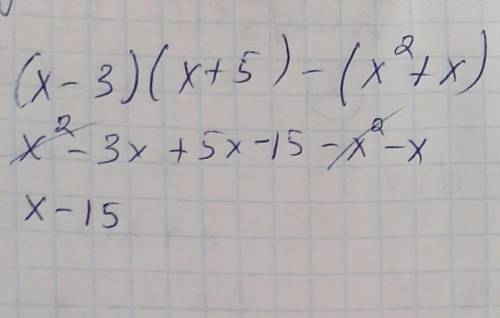 (x-3)(x+5)-(x²+x)
x²-3x+5x-15-x²-x
x-15